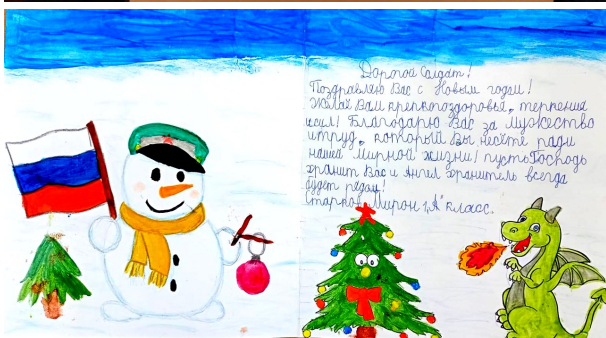 Дорогой Солдат!
Поздравляю Вас с Новым годом!
Желаю Вам крепкоздоровья, терпения
и сил! Благодарю Вас за мужество
и труд, который Вы несёте ради
нашей мирной жизни! пусть Господь
хранит Вас и Ангел хранитель всегда
будет рядом!
Мирон 1 "А" класс.